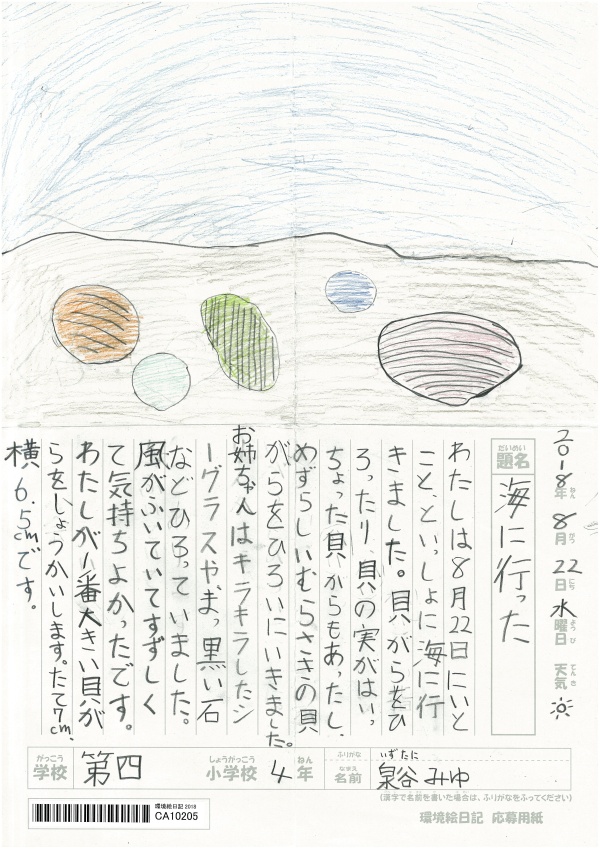 2018年8月22日水曜日 天気
ねん がつ にち ようび てんき
だいめい
題名 海に行った
わたしは8月22日にいと
こと、といっしょに海に行
きました。貝がらをひ
ろったり、貝の実がはいっ
ちょった貝からもあったし、
めずらしいむらさきの貝
がらをひろいにいきました。
お姉ちゃんはキラキラしたシ
ーグラスや、まっ黒い石
などひろっていました。
風がふいていてすずしく
て気持ちよかったです。
わたしが一番大きい貝が
らをしょうかいします。たて7cm、
横6.5cmです。
がっこう しょうがっこう ねん ふりがな いずたに
学校 第四 小学校 4年 なまえ 名前 泉谷みゆ
(漢字で名前を書いた場合は、ふりがなをふってください)
環境絵日記 2018
CA10205
環境絵日記 応募用紙